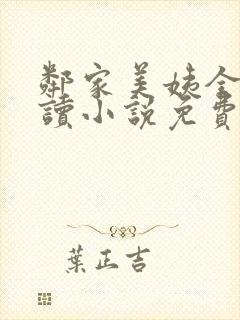 鄰家美姨全
讀小說免費
葉正吉